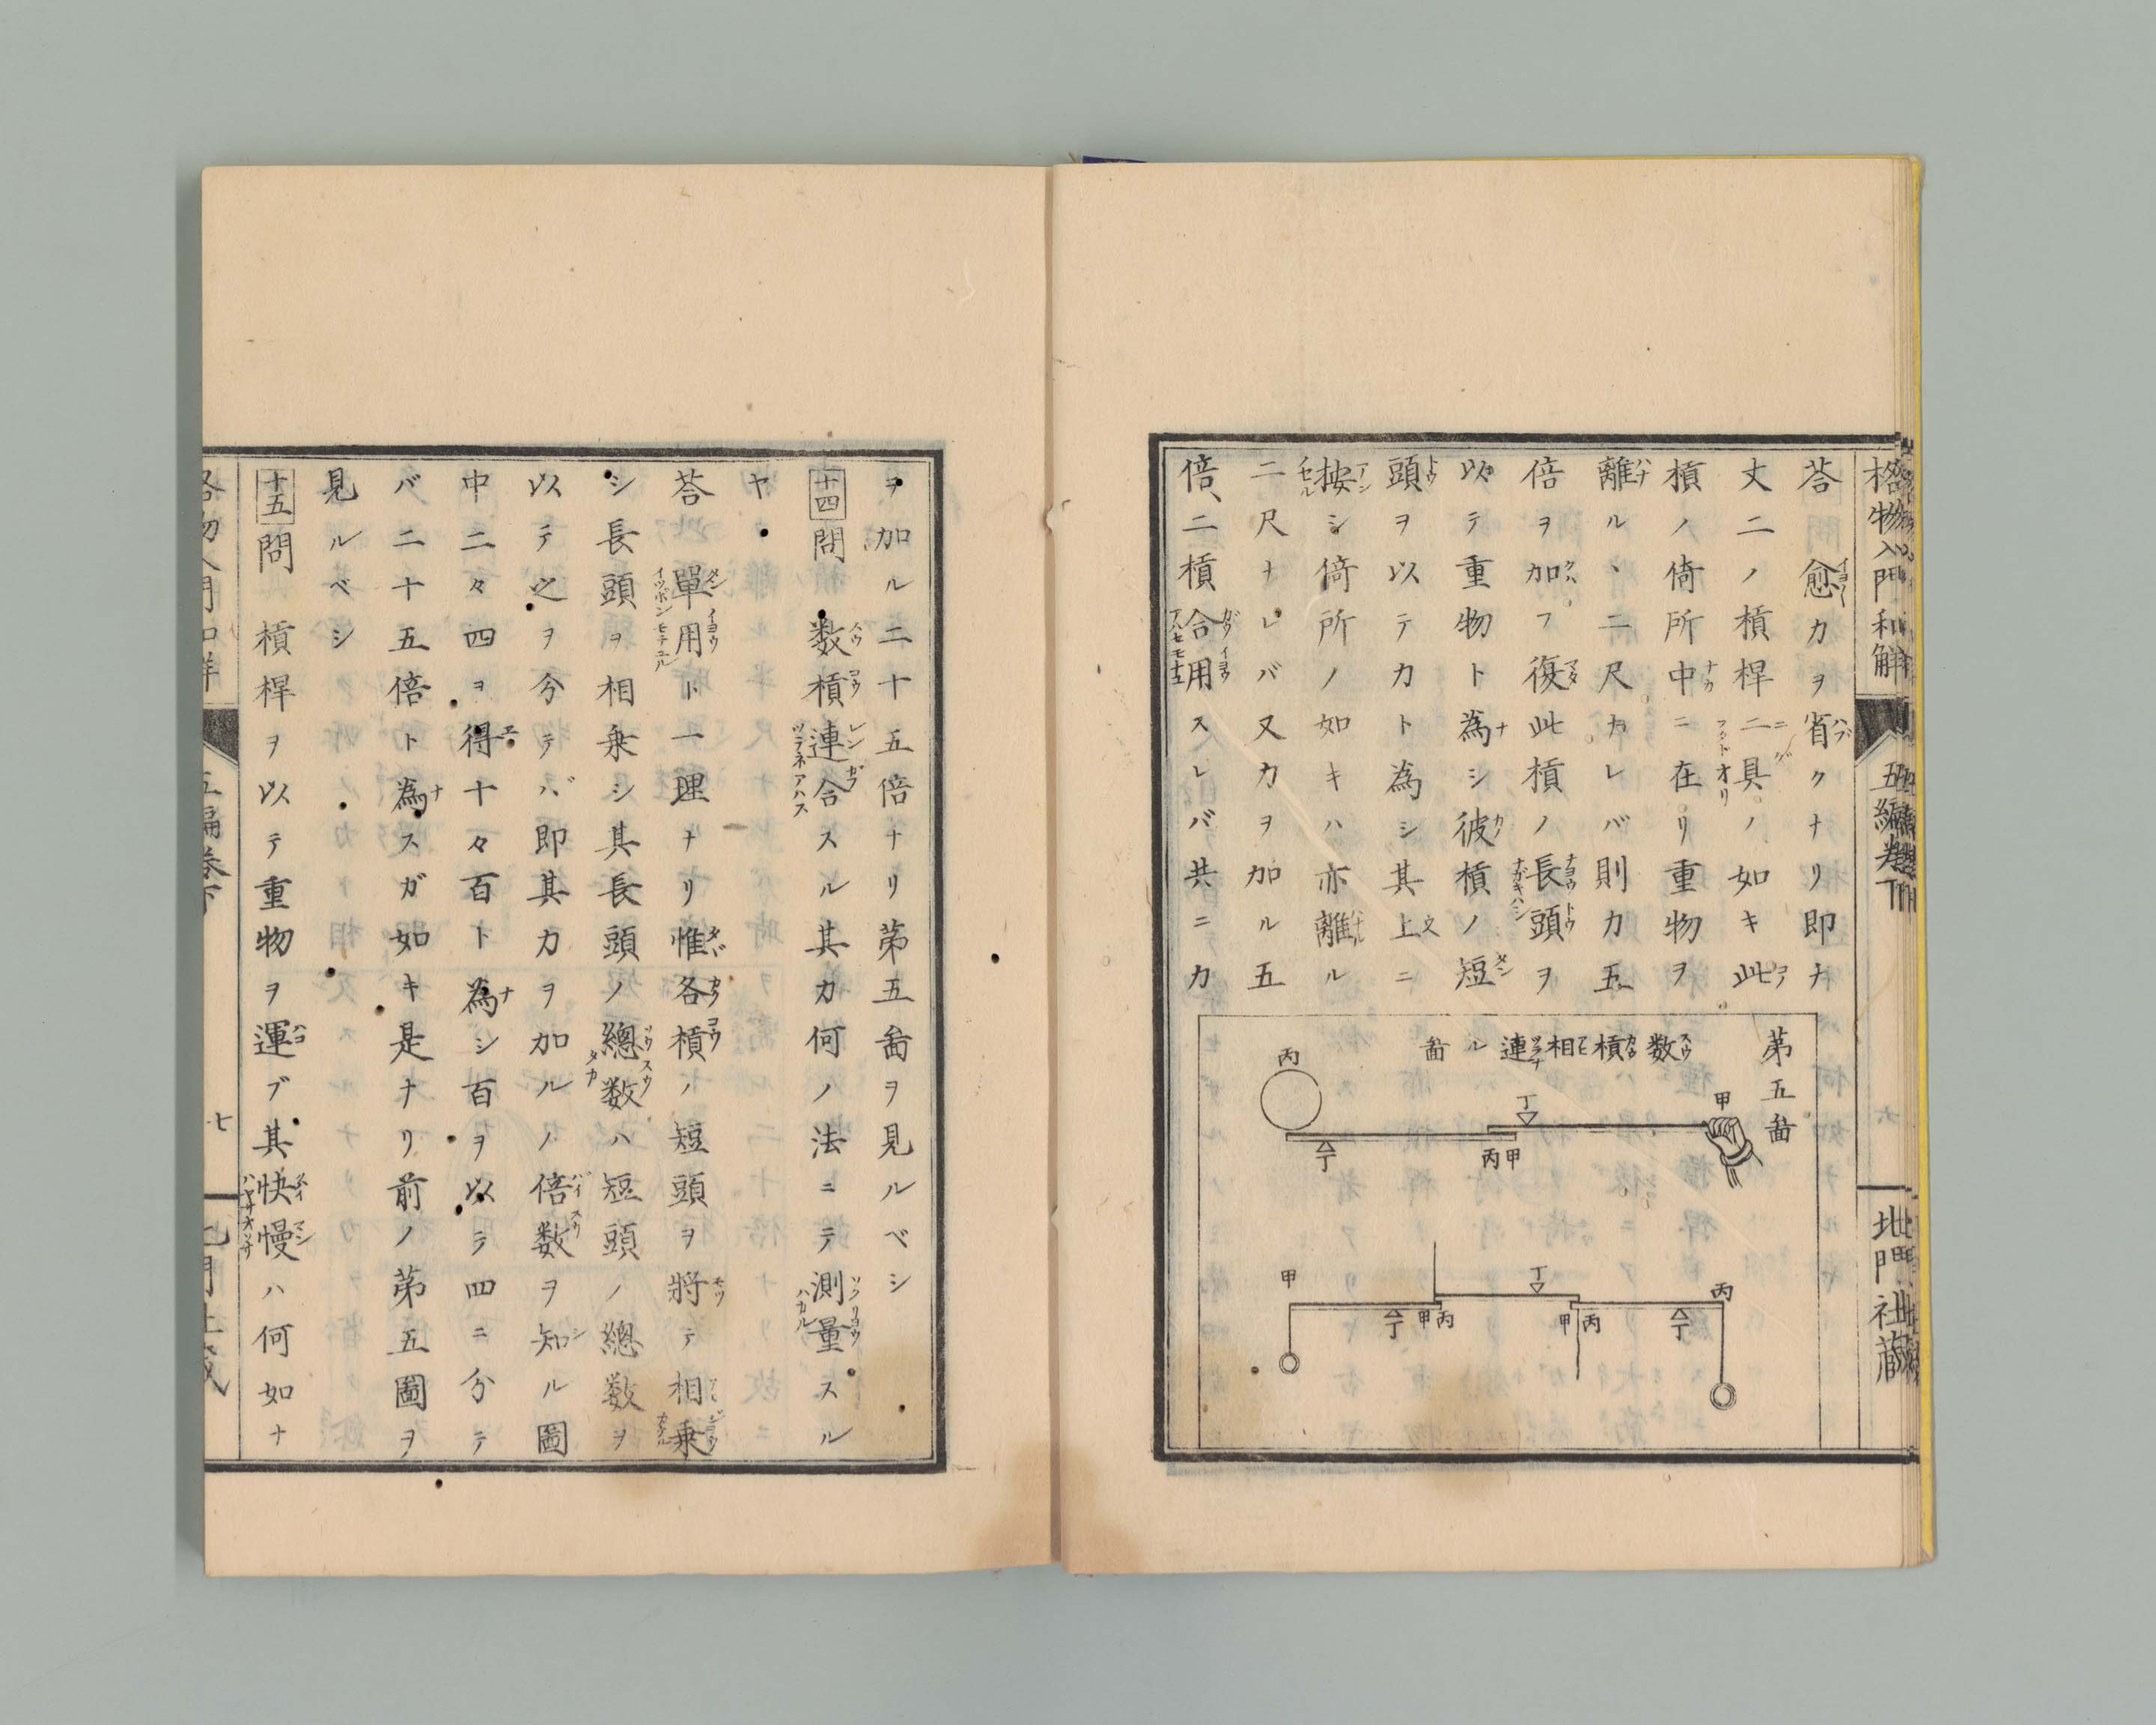 格物入門和解 五編巻下 六 地門社蔵
荅 愈力ヲ省クナリ即ナ
丈二ノ槓桿二具ノ如キ此
槓ノ倚所中ニ在リ重物ヲ
離ルヽ二尺カレバ則力五
倍ヲ加フ復此槓ノ長頭ヲ
以テ重物ト為シ彼槓ノ短
頭ヲ以テ力ト為シ其上ニ
按シ倚所ノ如キハ亦離ル
二尺ナレバ又力ヲ加ル五
倍、二槓合用スレバ共ニ力
第五啚
数槓相連ル啚
甲
丁
丙
甲丙
丁
甲
丁
丙
丁
甲丙
甲丙
丁
ヲ加ル二十五倍ナリ第五啚ヲ見ルベシ
十四問 数槓連合スル其力何ノ法ニテ測量スル
ヤ
荅 單用ト一理ナリ惟各槓ノ短頭ヲ將テ相乗
シ長頭ヲ相乗シ其長頭ノ總数ハ短頭ノ總数ヲ
以テ之ヲ分テバ即其力ヲ加ルノ倍数ヲ知ル圖
中二々四ヲ得十々百ト為シ百ヲ以テ四ニ分テ
バ二十五倍ト為スガ如キ是ナリ前ノ第五圖ヲ
見ルベシ
十五問 槓桿ヲ以テ重物ヲ運ブ其快慢ハ何如ナ
七